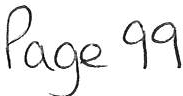 Page 99